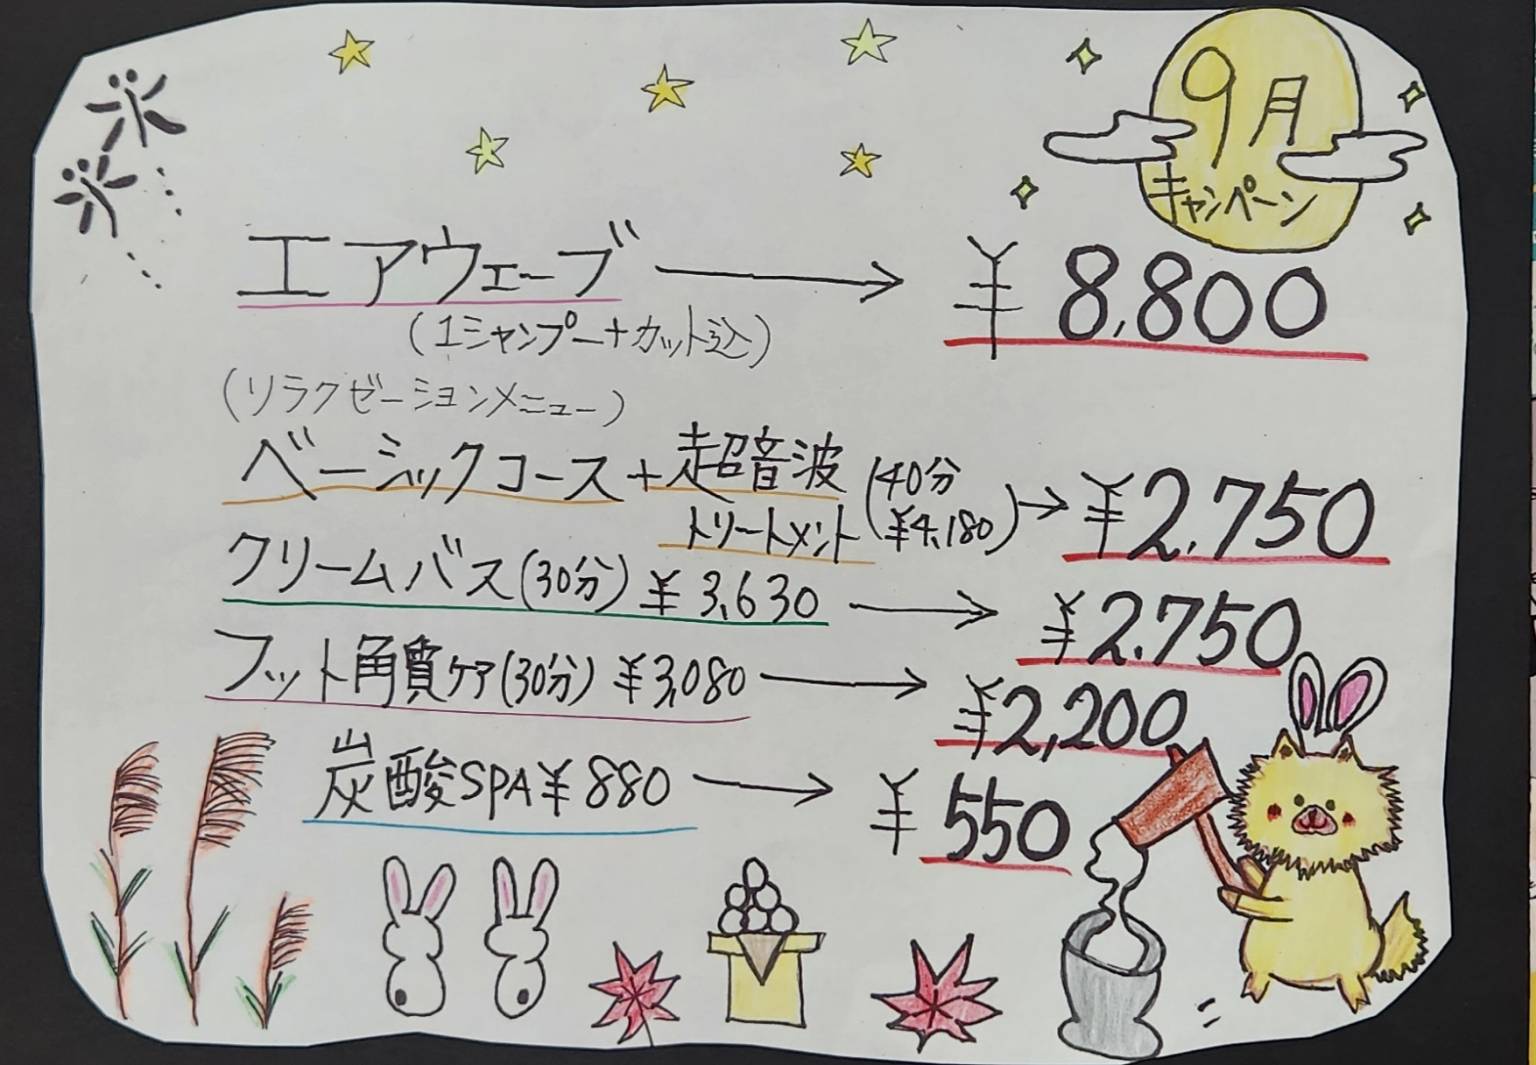 9月
キャンペーン
エアウェーブ → ¥8,800
(1シャンプー+カット込)
(リラクゼーションメニュー)
ベーシックコース+超音波トリートメント(40分 ¥4,180) → ¥2,750
クリームバス(30分) ¥3,630 → ¥2,750
フット角質ケア(30分) ¥3,080 → ¥2,200
炭酸SPA ¥880 → ¥550